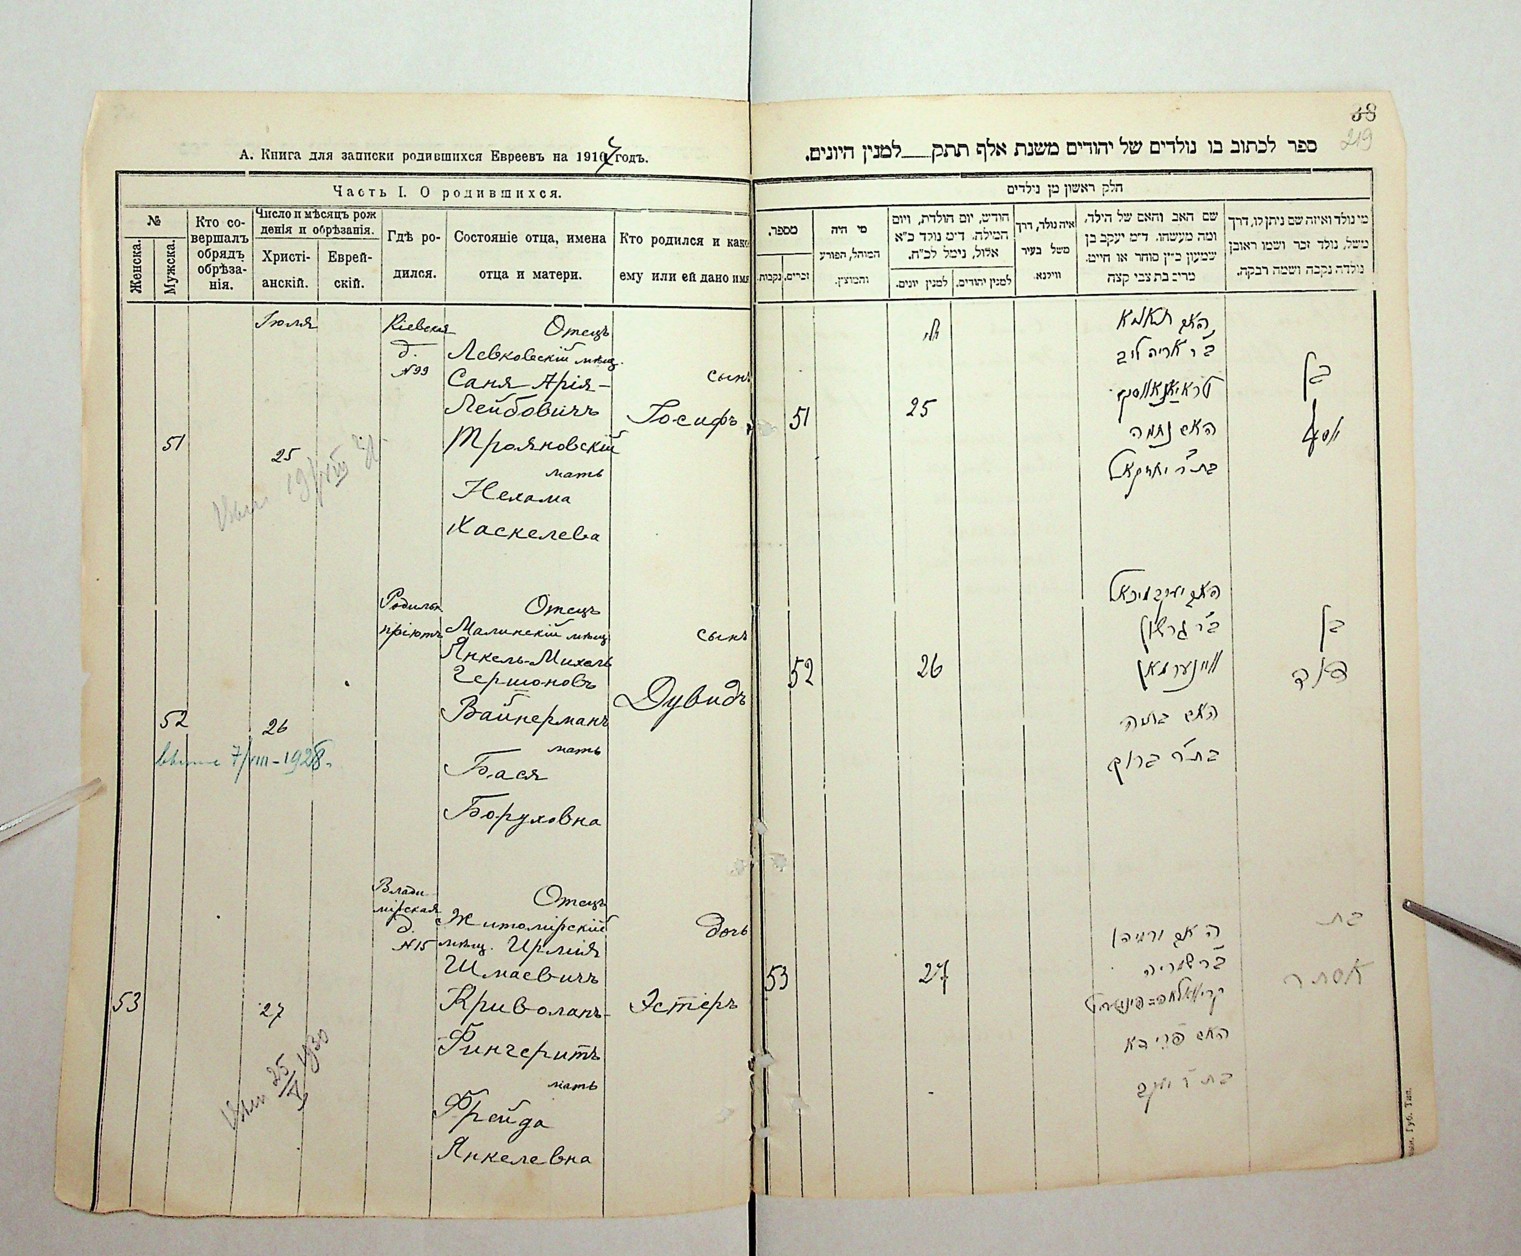 38
219
А. Книга для записки родившихся Евреевъ на 1917 годъ.
Часть I. О родившихся.
№
Женска.
Мужска.
Кто со-
вершалъ
обрядъ
обрѣза-
нія.
Число и мѣсяцъ рож
денія и обрѣзанія.
Христі-
анскій.
Еврей-
скій.
Гдѣ ро-
дился.
Состояніе отца, имена
отца и матери.
Кто родился и како
ему или ей дано имя
Іюля
Кіевская
д.
№99
Отецъ
Левковскій мѣщ.
Саня Арія-
Лейбовичъ
Трояновскій
мать
Нехама
Хаскелева
сынъ
Іосифъ
51
25
Родильн
пріютъ
Отецъ
Малинскій мѣщ
Янкель-Михель
Гершоновъ
Вайнерманъ
мать
Бася
Боруховна
сынъ
Дувидъ
52
26
7/VIII-1928.
Влади
мірская
д.
№15
Отецъ
Житомірскій
мѣщ. Ирмія
Шмаевичъ
Криволапъ-
Фингеритъ
мать
Фрейда
Янкелевна
дочь
Эстеръ
53
27
25/V 1930
ספר לכתוב בו נולדים של יהודים משנת אלף תתק___למנין היונים.
חלק ראשון מן נולדים
מספר.
נקבות.
זכרים.
מי היה
המוהל, הפורע
והמוצץ.
חודש, יום הולדת, ויום
המילה. ד״מ נולד כ״א
אלול, נימל לכ״ח.
למנין יונים.
למנין יהודים.
איה נולד, דרך
משל בעיר
ווילנא.
שם האב והאם של הילד,
ומה מעשהו. ד״מ יעקב בן
שמעון כ״ץ סוחר או חייט.
מרים בת צבי קצה
מי נולד ואיזה שם ניתן לו, דרך
משל, נולד זכר ושמו ראובן
נולדה נקבה ושמה רבקה.
51
25
ב״ר אריה ליב
טראיאנאווסקי
האם נחמה
בת״ר יחזקאל
בן
יוסף
52
26
האב יעקב מיכאל
ב״ר גרשון
וויינערמאן
האם בתיה
בת״ר ברוך
בן
דוד
53
27
האב ירמיהו
ב״ר שמריה
האם פריידא
בת״ר יעקב
בת
אסתר
Губ. Тип.